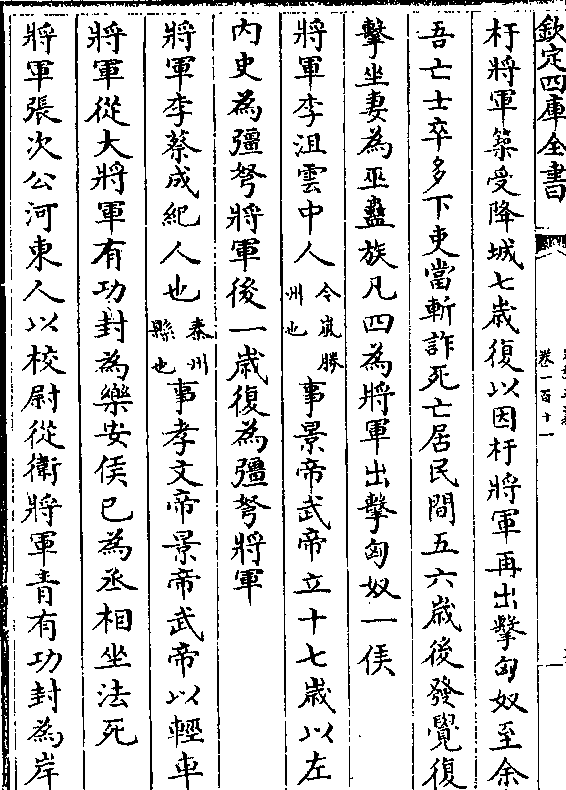 欽定四庫全書
卷一百十一
杅將軍築受降城七歳復以因杅將軍再出擊匈奴至余
吾亡士卒多下吏當斬詐死亡居民間五六歳後發覺復
擊坐妻為巫蠱族凡四為將軍出擊匈奴一侯
將軍李沮雲中人今嵐勝州也事景帝武帝立十七歳以左
內史為彊弩將軍後一歳復為彊弩將軍
將軍李蔡成紀人也秦州縣也事孝文帝景帝武帝以輕車
將軍從大將軍有功封為樂安侯已為丞相坐法死
將軍張次公河東人以校尉從衛將軍青有功封為岸